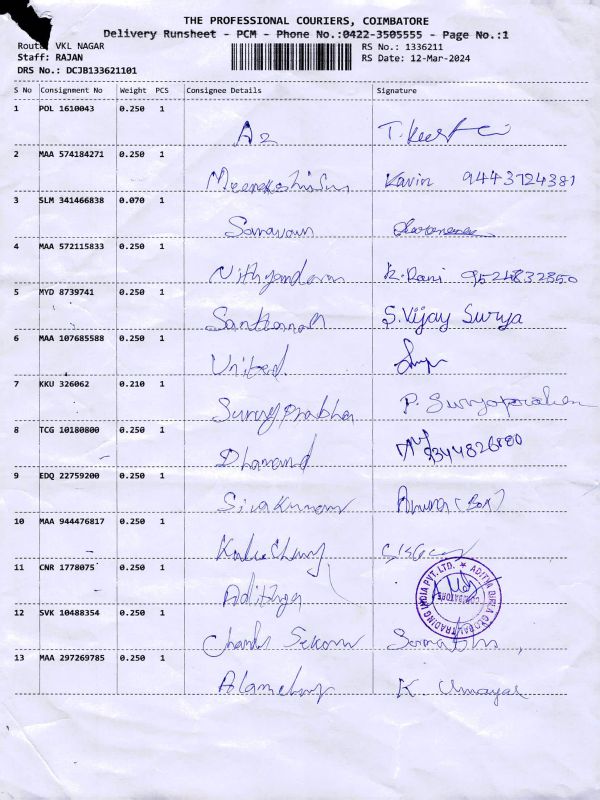 THE PROFESSIONAL COURIERS, COIMBATORE
Delivery Runsheet - PCM - Phone No.:0422-3505555 - Page No.:1
Route: VKL NAGAR RS No.: 1336211
Staff: RAJAN RS Date: 12-Mar-2024
DRS No.: DCJB133621101
S No Consignment No Weight PCS Consignee Details Signature
1 POL 1610043 0.250 1
2 MAA 574184271 0.250 1
Kavin 9443724381
3 SLM 341466838 0.070 1
Saravan
4 MAA 572115833 0.250 1
K. Rani 9524832350
5 MYD 8739741 0.250 1
S. Vijay Surya
6 MAA 107685588 0.250 1
United
7 KKU 326062 0.210 1
Suryprabha
8 TCG 10180800 0.250 1
9344826880
Dhanand
9 EDQ 22759200 0.250 1
Siva Kumar (Box)
10 MAA 944476817 0.250 1
11 CNR 1778075 1
0.250
ADITYA BIRLA GLOBAL TRADING INDIA PVT. LTD.
COIMBATORE
Adithya
12 SVK 10488354 0.250 1
13 MAA 297269785 0.250 1
K. Umayal